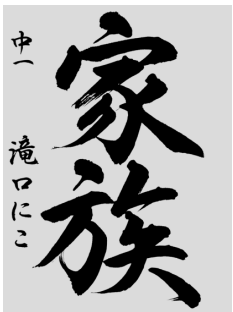 家族
中一 滝口にこ